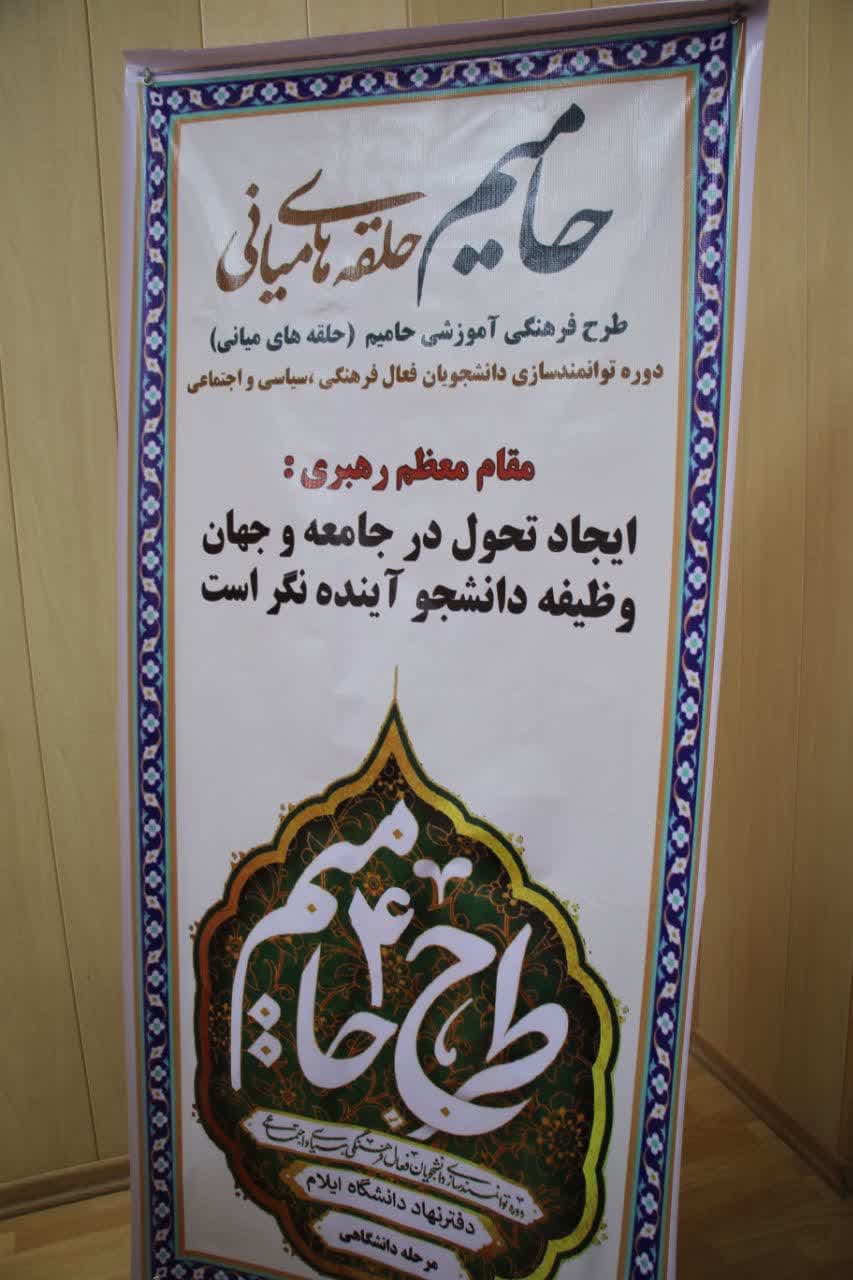 حامیم حلقه های میانی
طرح فرهنگی آموزشی حامیم (حلقه های میانی)
دوره توانمندسازی دانشجویان فعال فرهنگی ،سیاسی و اجتماعی
مقام معظم رهبری :
ایجاد تحول در جامعه و جهان
وظیفه دانشجو آینده نگر است
طرح حامیم ۴
دوره توانمندسازی دانشجویان فعال فرهنگی، سیاسی و اجتماعی
دفترنهاد دانشگاه ایلام
مرحله دانشگاهی